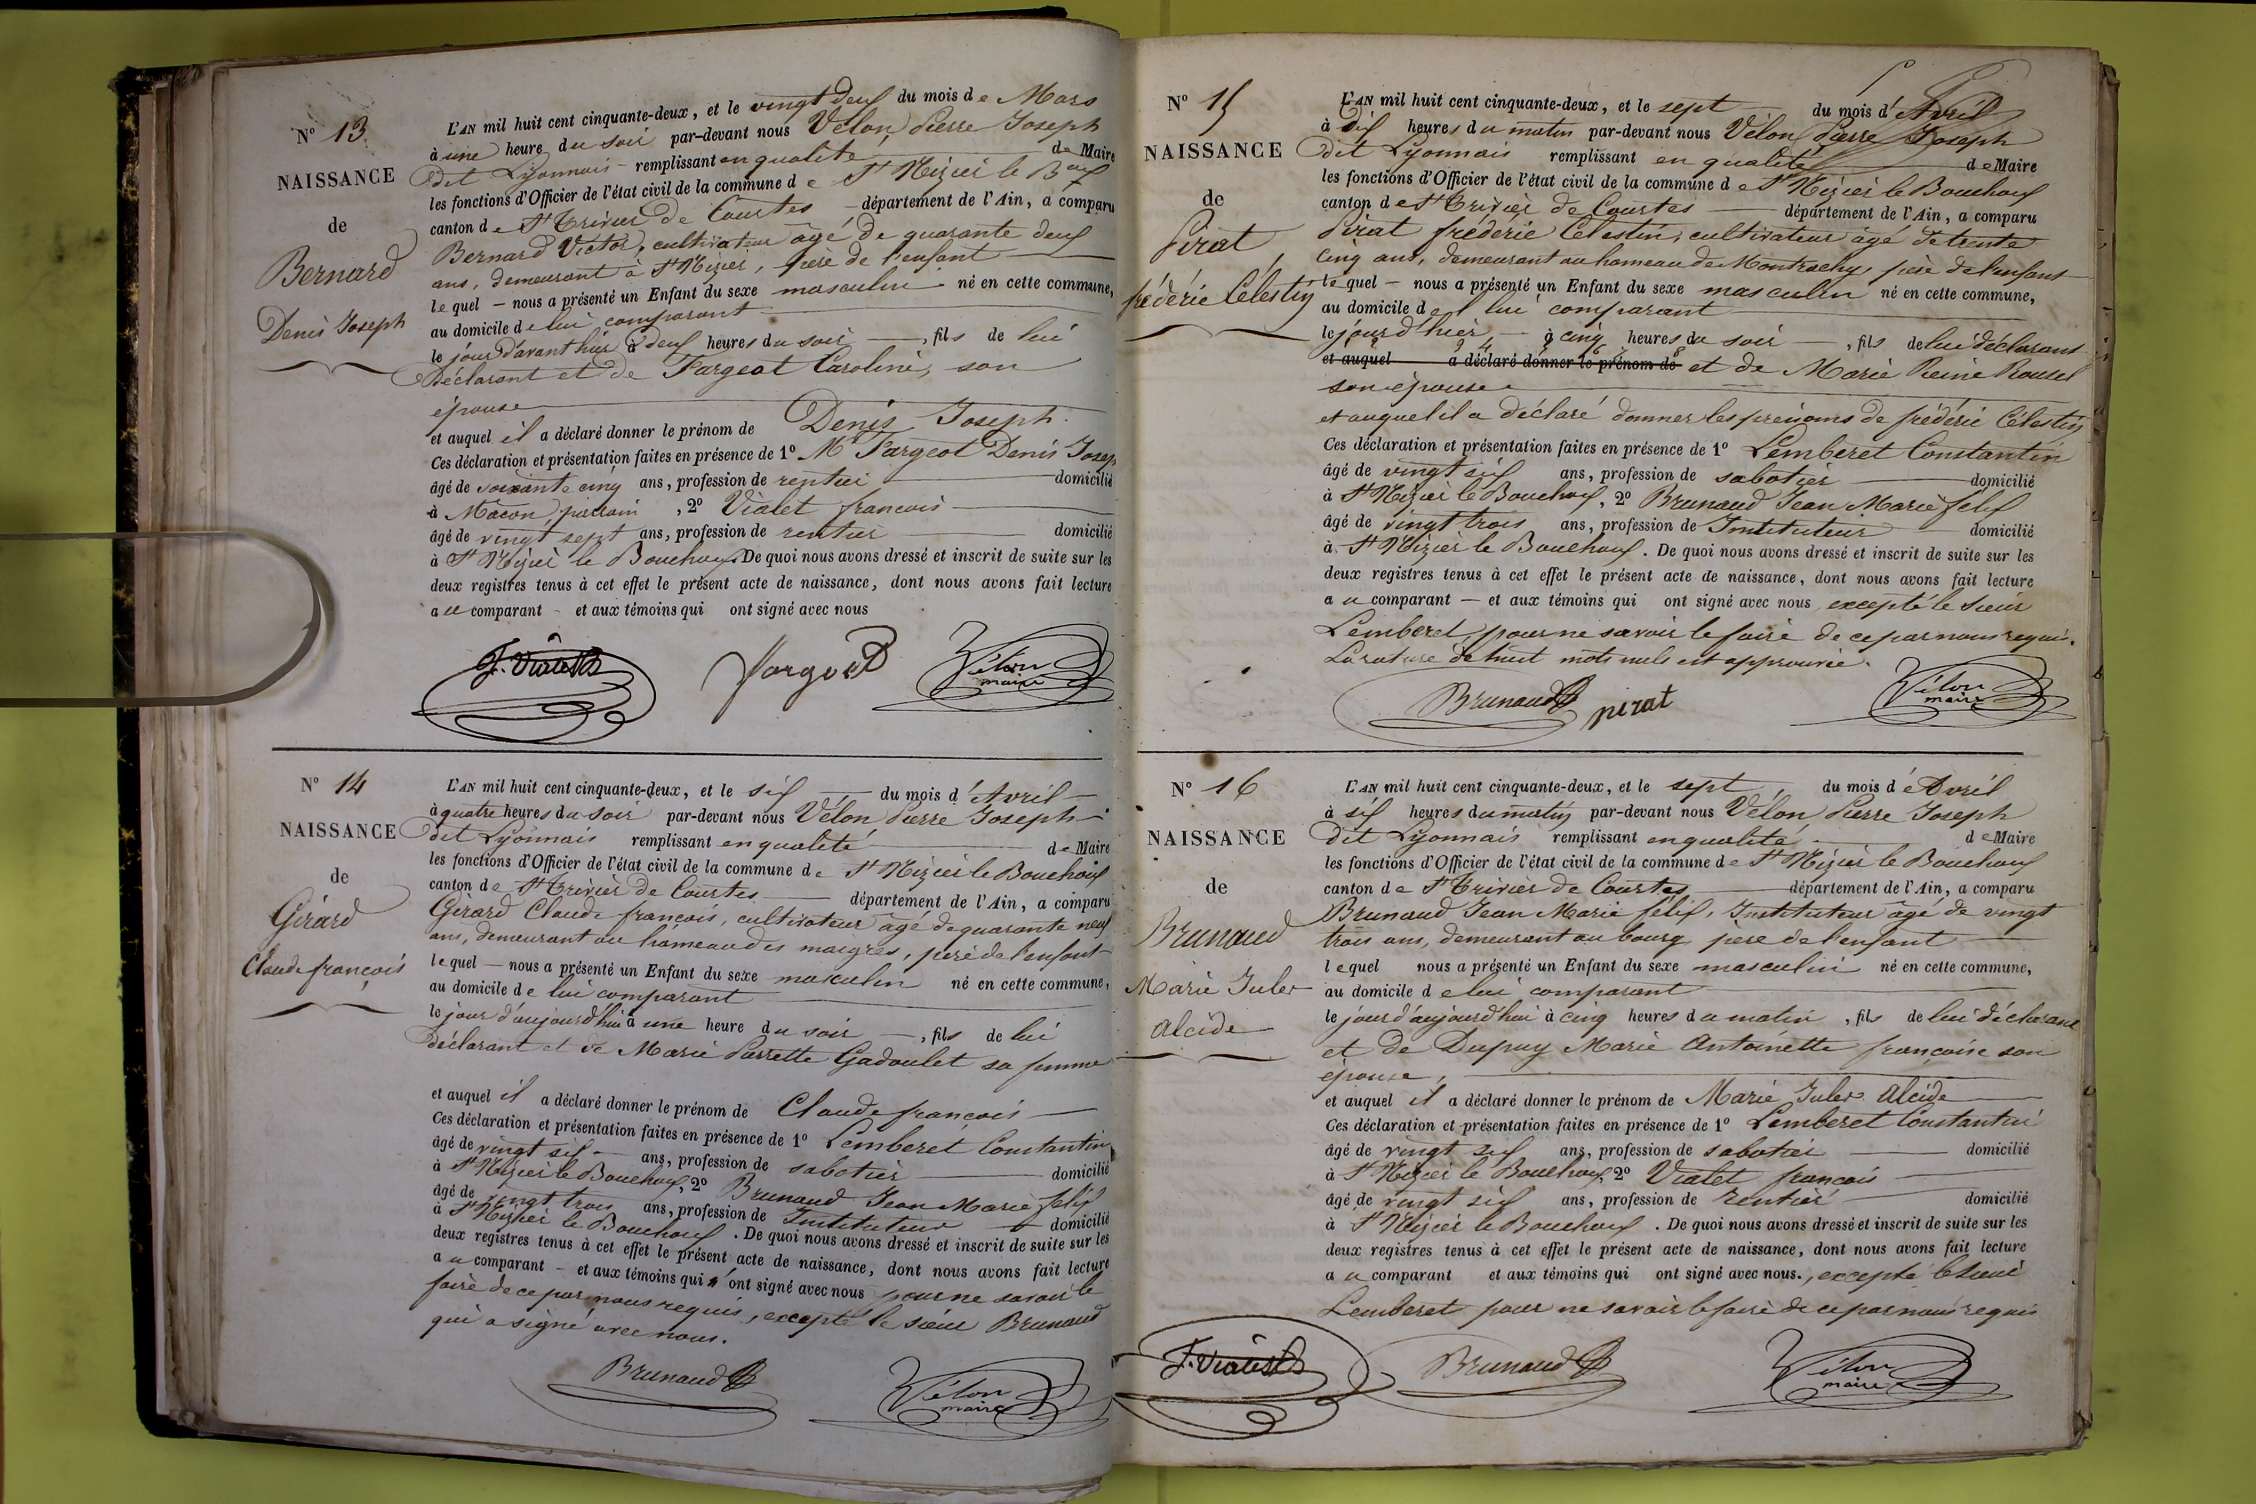 N° 13
NAISSANCE
de
Bernard
Denis Joseph
L'AN mil huit cent cinquante-deux, et le vingt deux du mois de Mars
à une heure du soir par-devant nous Vélon Pierre Joseph
dit Lyonnais remplissant en qualité de Maire
les fonctions d'Officier de l'état civil de la commune de St Nizier le Boux
canton de St Trivier de Courtes département de l'Ain, a comparu
Bernard Victor, cultivateur âgé de quarante deux
ans, demeurant à St Nizier, père de l'enfant
lequel nous a présenté un Enfant du sexe masculin né en cette commune,
au domicile de lui comparant
le jour d'avant hier à deux heures du soir, fils de lui
déclarant et de Fargeot Caroline, son
épouse
et auquel il a déclaré donner le prénom de Denis Joseph.
Ces déclaration et présentation faites en présence de 1° Mr Fargeot Denis Josep
âgé de soixante cinq ans, profession de rentier domicilié
à Mâcon, parrain, 2° Vialet francois
âgé de vingt sept ans, profession de rentier domicilié
à St Nizier le Bouchoux. De quoi nous avons dressé et inscrit de suite sur les
deux registres tenus à cet effet le présent acte de naissance, dont nous avons fait lecture
au comparant et aux témoins qui ont signé avec nous
F. Vialet Fargeot Vélon
maire
N° 14
NAISSANCE
de
Gérard
Claude françois
L'AN mil huit cent cinquante-deux, et le six du mois d'Avril
à quatre heures du soir par-devant nous Vélon Pierre Joseph
dit Lyonnais remplissant en qualité de Maire
les fonctions d'Officier de l'état civil de la commune de St Nizier le Bouchoux
canton de St Trivier de Courtes département de l'Ain, a comparu
Gérard Claude françois, cultivateur âgé de quarante neuf
ans, demeurant au hameau des maigres, père de l'enfant
lequel nous a présenté un Enfant du sexe masculin né en cette commune,
au domicile de lui comparant
le jour d'aujourd'hui à une heure du soir, fils de lui
déclarant et de Marie Pierrette Gadoulet sa femme
et auquel il a déclaré donner le prénom de Claude françois
Ces déclaration et présentation faites en présence de 1° Lemberet Constantin
âgé de vingt six ans, profession de sabotier domicilié
à St Nizier le Bouchoux, 2° Brunaud Jean Marie félix
âgé de vingt trois ans, profession de Instituteur domicilié
à St Nizier le Bouchoux. De quoi nous avons dressé et inscrit de suite sur les
deux registres tenus à cet effet le présent acte de naissance, dont nous avons fait lecture
au comparant et aux témoins qui n'ont signé avec nous pour ne savoir le
faire de ce par nous requis, excepté le sieur Brunaud
qui a signé avec nous.
Brunaud Vélon
maire
N° 15
NAISSANCE
de
Pirat
frédéric Célestin
L'AN mil huit cent cinquante-deux, et le sept du mois d'Avril
à dix heures du matin par-devant nous Vélon Pierre Joseph
dit Lyonnais remplissant en qualité de Maire
les fonctions d'Officier de l'état civil de la commune de St Nizier le Bouchoux
canton de St Trivier de Courtes département de l'Ain, a comparu
Pirat frédéric Célestin, cultivateur âgé de trente
cinq ans, demeurant au hameau de Montrachy, père de l'enfant
lequel nous a présenté un Enfant du sexe masculin né en cette commune,
au domicile de lui comparant
le jour d'hier à cinq heures du soir, fils de lui déclarant
et auquel a déclaré donner le prénom de et de Marie Reine Rousel
son épouse
et auquel il a déclaré donner les prénoms de frédéric Célestin
Ces déclaration et présentation faites en présence de 1° Lemberet Constantin
âgé de vingt six ans, profession de sabotier domicilié
à St Nizier le Bouchoux, 2° Brunaud Jean Marie félix
âgé de vingt trois ans, profession de Instituteur domicilié
à St Nizier le Bouchoux. De quoi nous avons dressé et inscrit de suite sur les
deux registres tenus à cet effet le présent acte de naissance, dont nous avons fait lecture
au comparant et aux témoins qui ont signé avec nous excepté le sieur
Lemberet, pour ne savoir le faire de ce par nous requis.
La rature de huit mots nuls est approuvée.
Brunaud pirat Vélon
maire
N° 16
NAISSANCE
de
Brunaud
Marie Jules
alcide
L'AN mil huit cent cinquante-deux, et le sept du mois d'Avril
à six heures du matin par-devant nous Vélon Pierre Joseph
dit Lyonnais remplissant en qualité de Maire
les fonctions d'Officier de l'état civil de la commune de St Nizier le Bouchoux
canton de St Trivier de Courtes département de l'Ain, a comparu
Brunaud Jean Marie félix, Instituteur âgé de vingt
trois ans, demeurant au bourg père de l'enfant
lequel nous a présenté un Enfant du sexe masculin né en cette commune,
au domicile de lui comparant
le jour d'aujourd'hui à cinq heures du matin, fils de lui déclarant
et de Dupuy Marie Antoinette françoise son
épouse,
et auquel il a déclaré donner le prénom de Marie Jules alcide
Ces déclaration et présentation faites en présence de 1° Lemberet Constantin
âgé de vingt six ans, profession de sabotier domicilié
à St Nizier le Bouchoux, 2° Vialet francois
âgé de vingt six ans, profession de rentier domicilié
à St Nizier le Bouchoux. De quoi nous avons dressé et inscrit de suite sur les
deux registres tenus à cet effet le présent acte de naissance, dont nous avons fait lecture
au comparant et aux témoins qui ont signé avec nous., excepté le sieur
Lemberet pour ne savoir le faire de ce par nous requis
F. Vialet Brunaud Vélon
maire